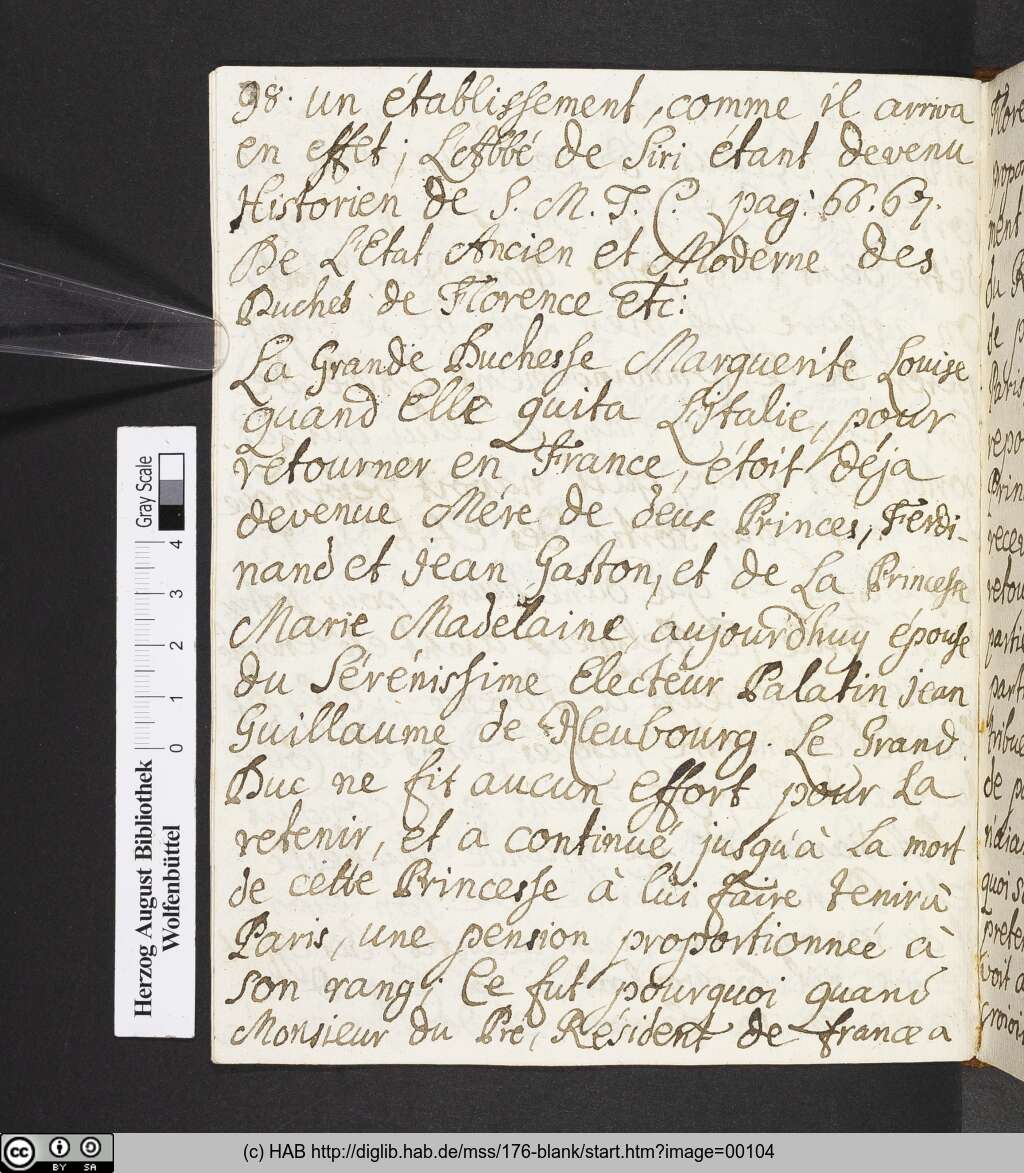 98. un établissement, comme il arriva
en effet; L'Abbé de Siri étant devenu
Historien de S. M. T. C. pag: 66. 67.
De L'Etat Ancien et Moderne des
Duchés de Florence etc:
La Grande Duchesse Marguerite Louise
quand Elle quita L'Italie, pour
retourner en France, étoit déja
devenue Mére de deux Princes, Ferdi-
nand et Jean Gaston, et de La Princesse
Marie Madelaine aujourdhuy épouse
du Sérénissime Electeur Palatin Jean
Guillaume de Neubourg. Le Grand
Duc ne fit aucun effort pour La
retenir, et a continué jusqu'à La mort
de cette Princesse à lui faire tenir à
Paris, une pension proportionneé à
son rang; Ce fut pourquoi quand
Monsieur du Pré, Résident de france a
Herzog August Bibliothek
Wolfenbüttel
Gray Scale
0 1 2 3 4
cc BY SA
(c) HAB http://diglib.hab.de/mss/176-blank/start.htm?image=00104